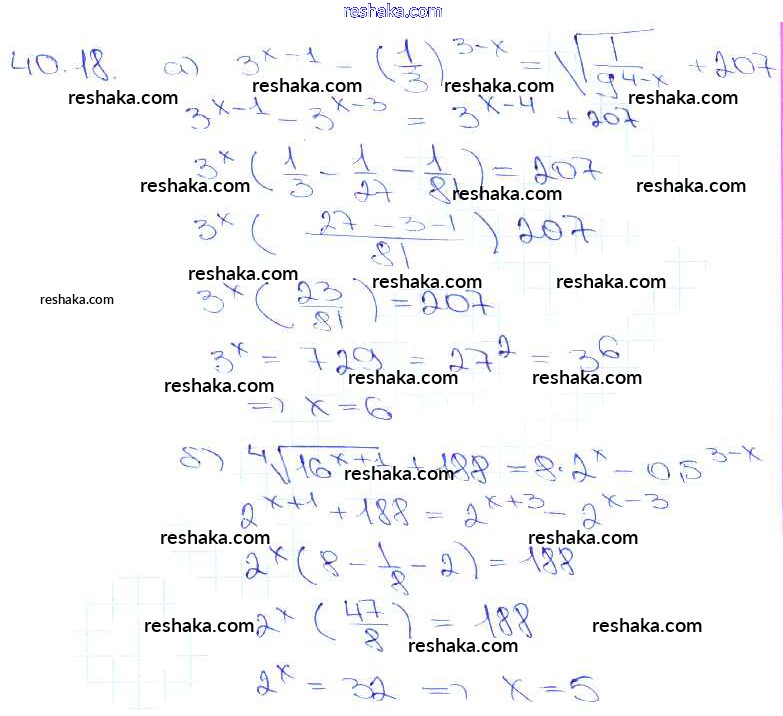 reshaka.com
40.18. а) 3^{x-1} - (1/3)^{3-x} = √(1/9^{4-x}) + 207
reshaka.com reshaka.com reshaka.com reshaka.com
3^{x-1} - 3^{x-3} = 3^{x-4} + 207
3^x (1/3 - 1/27 - 1/81) = 207
reshaka.com reshaka.com reshaka.com
3^x ((27-3-1)/81) 207
reshaka.com reshaka.com reshaka.com
reshaka.com
3^x (23/81) = 207
3^x = 729 = 27^2 = 3^6
reshaka.com reshaka.com reshaka.com
=> x = 6
б) ⁴√(16^{x+1}) + 188 = 8·2^x - 0,5^{3-x}
reshaka.com
2^{x+1} + 188 = 2^{x+3} - 2^{x-3}
reshaka.com reshaka.com reshaka.com
2^x (8 - 1/8 - 2) = 188
2^x (47/8) = 188
reshaka.com reshaka.com reshaka.com
2^x = 32 => x = 5